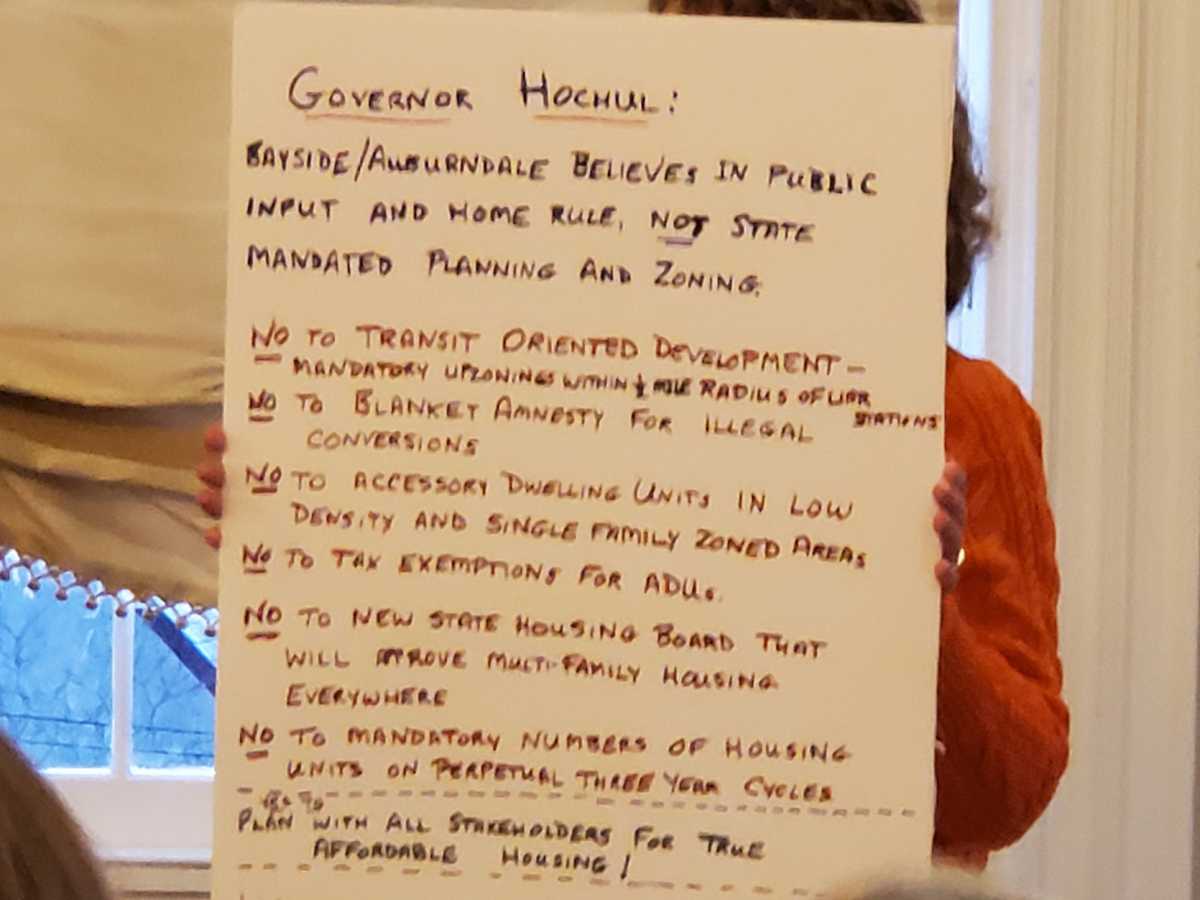 GOVERNOR HOCHUL:
BAYSIDE/AUBURNDALE BELIEVES IN PUBLIC
INPUT AND HOME RULE, NOT STATE
MANDATED PLANNING AND ZONING.
NO TO TRANSIT ORIENTED DEVELOPMENT -
MANDATORY UPZONINGS WITHIN ½ MILE RADIUS OF LIRR
STATIONS
NO TO BLANKET AMNESTY FOR ILLEGAL
CONVERSIONS
NO TO ACCESSORY DWELLING UNITS IN LOW
DENSITY AND SINGLE FAMILY ZONED AREAS
NO TO TAX EXEMPTIONS FOR ADUs.
NO TO NEW STATE HOUSING BOARD THAT
WILL APPROVE MULTI-FAMILY HOUSING
EVERYWHERE
NO TO MANDATORY NUMBERS OF HOUSING
UNITS ON PERPETUAL THREE YEAR CYCLES
PLAN WITH ALL STAKEHOLDERS FOR TRUE
AFFORDABLE HOUSING!